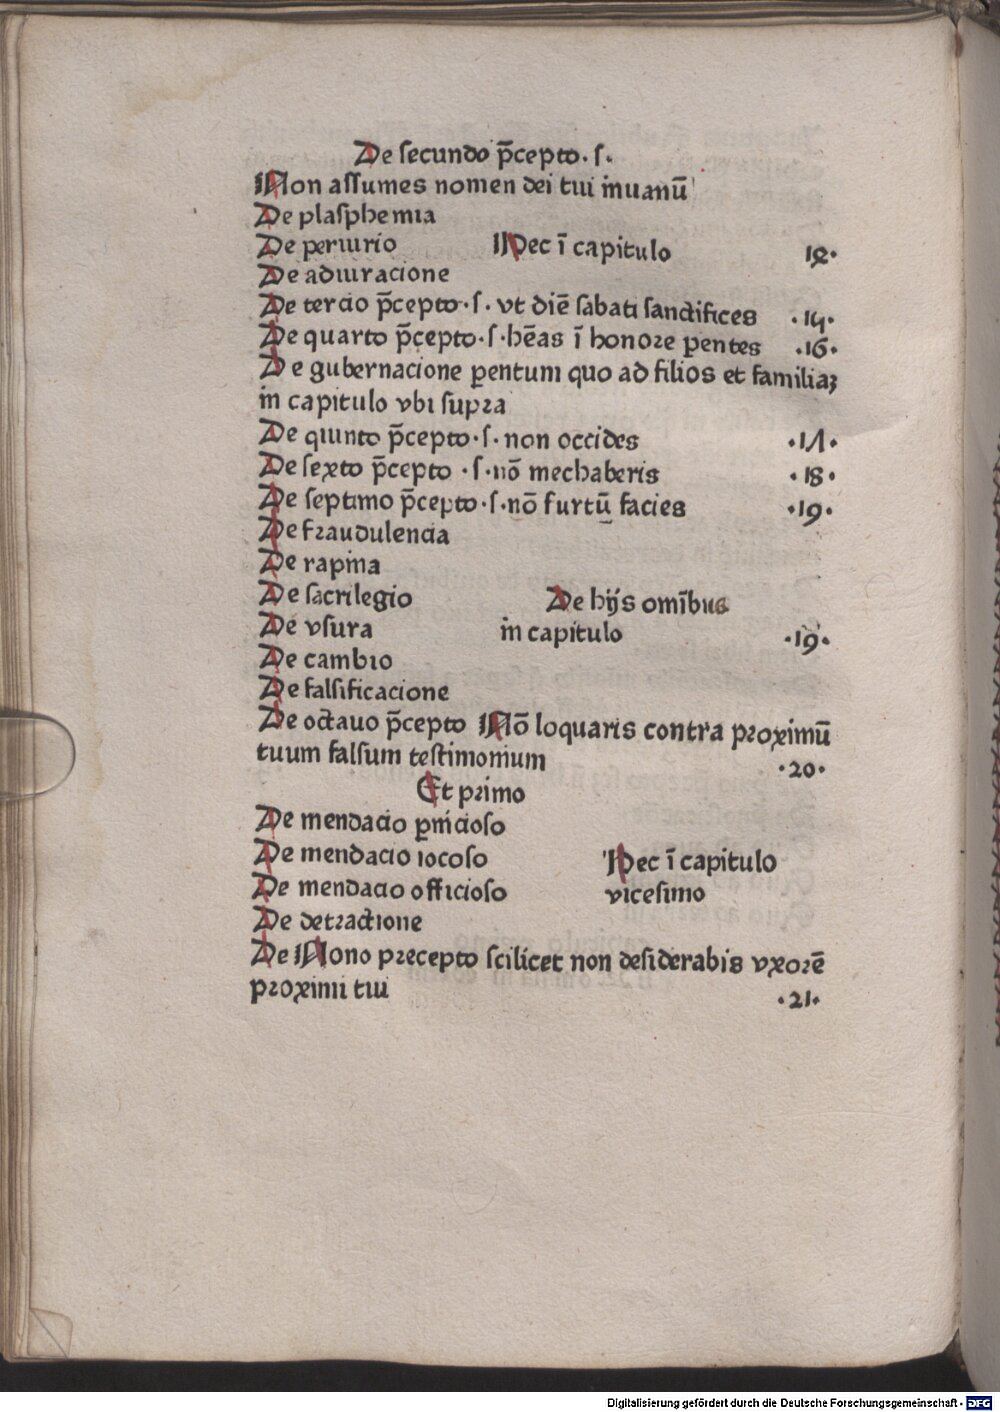 De secundo p̄cepto·ſ·
Non aſſumes nomen dei tui inuanū
De plaſphemia
De periurio Hec ī capitulo 12·
De adiuracione
De tercio p̄cepto·ſ· vt diē ſabati ſanctifices ·14·
De quarto p̄cepto·ſ·hēas ī honoꝛe ꝑentes ·16·
De gubernacione ꝑentum quo ad filios et familiaꝫ
in capitulo vbi ſupꝛa
De quinto p̄cepto·ſ·non occides ·17·
De ſexto p̄cepto ·ſ·nō mechaberis ·18·
De ſeptimo p̄cepto·ſ·nō furtū facies ·19·
De fꝛaudulencia
De rapina
De ſacrilegio De hijs omībus
De vſura in capitulo ·19·
De cambio
De falſificacione
De octauo p̄cepto Nō loquaris contra pꝛoximū
tuum falſum teſtimonium ·20·
Et primo
De mendacio ꝑnicioſo
De mendacio iocoſo Hec ī capitulo
De mendacio officioſo viceſimo
De detractione
De Nono pꝛecepto ſcilicet non deſiderabis vxoꝛē
pꝛoximi tui ·21·
Digitalisierung gefördert durch die Deutsche Forschungsgemeinschaft - DFG